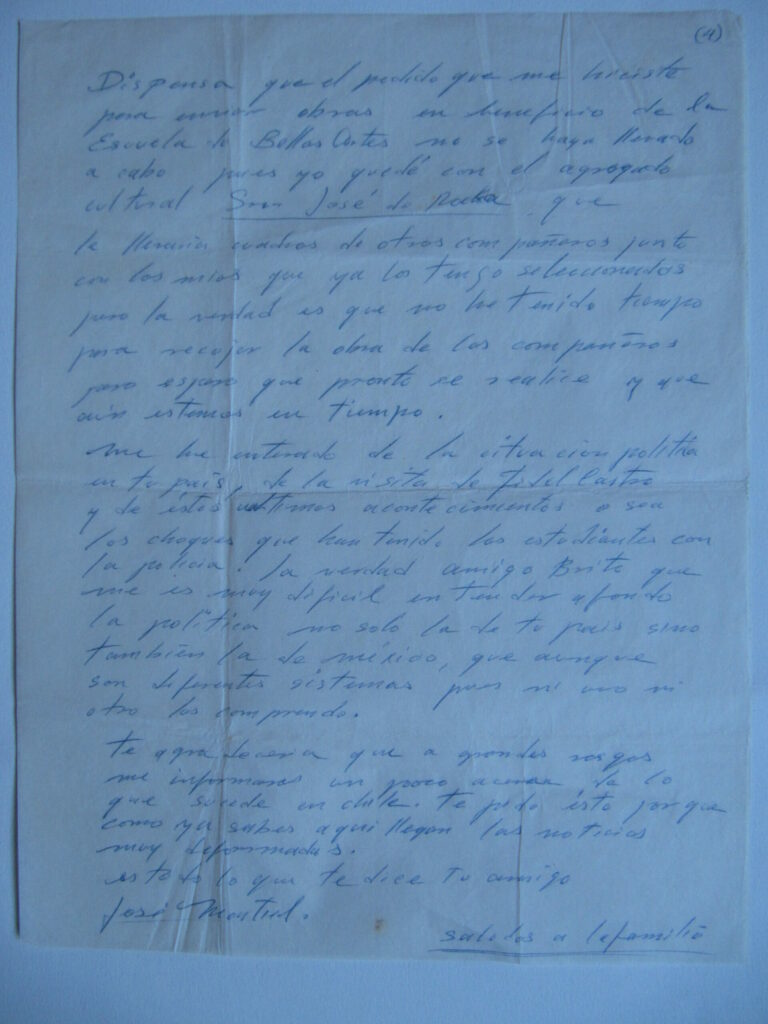 (4)
Dispensa que el pedido que me hiciste
para enviar obras en beneficio de la
Escuela de Bellas Artes no se haya llevado
a cabo pues yo quedé con el agregado
cultural José de
que
le llevaria cuadros de otros compañeros junto
con los mios que ya los tengo seleccionados
pero la verdad es que no he tenido tiempo
para recojer la obra de los compañeros
pero espero que pronto se realice y que
aún estemos en tiempo.
me he enterado de la situacion politica
en tu país, de la visita de Fidel Castro
y de éstos ultimos acontecimientos o sea
los choques que han tenido los estudiantes con
la policia. la verdad amigo Brito que
me es muy dificil entender afondo
la política no solo la de tu pais sino
también la de méxico, que aunque
son diferentes sistemas pues ni uno ni
otro los comprendo.
te agradeceria que a grandes rasgos
me informaras un poco acerca de lo
que sucede en chile. te pido ésto porque
como ya sabes aqui llegan las noticias
muy deformadas.
es todo lo que te dice tu amigo
José
saludos a la familia